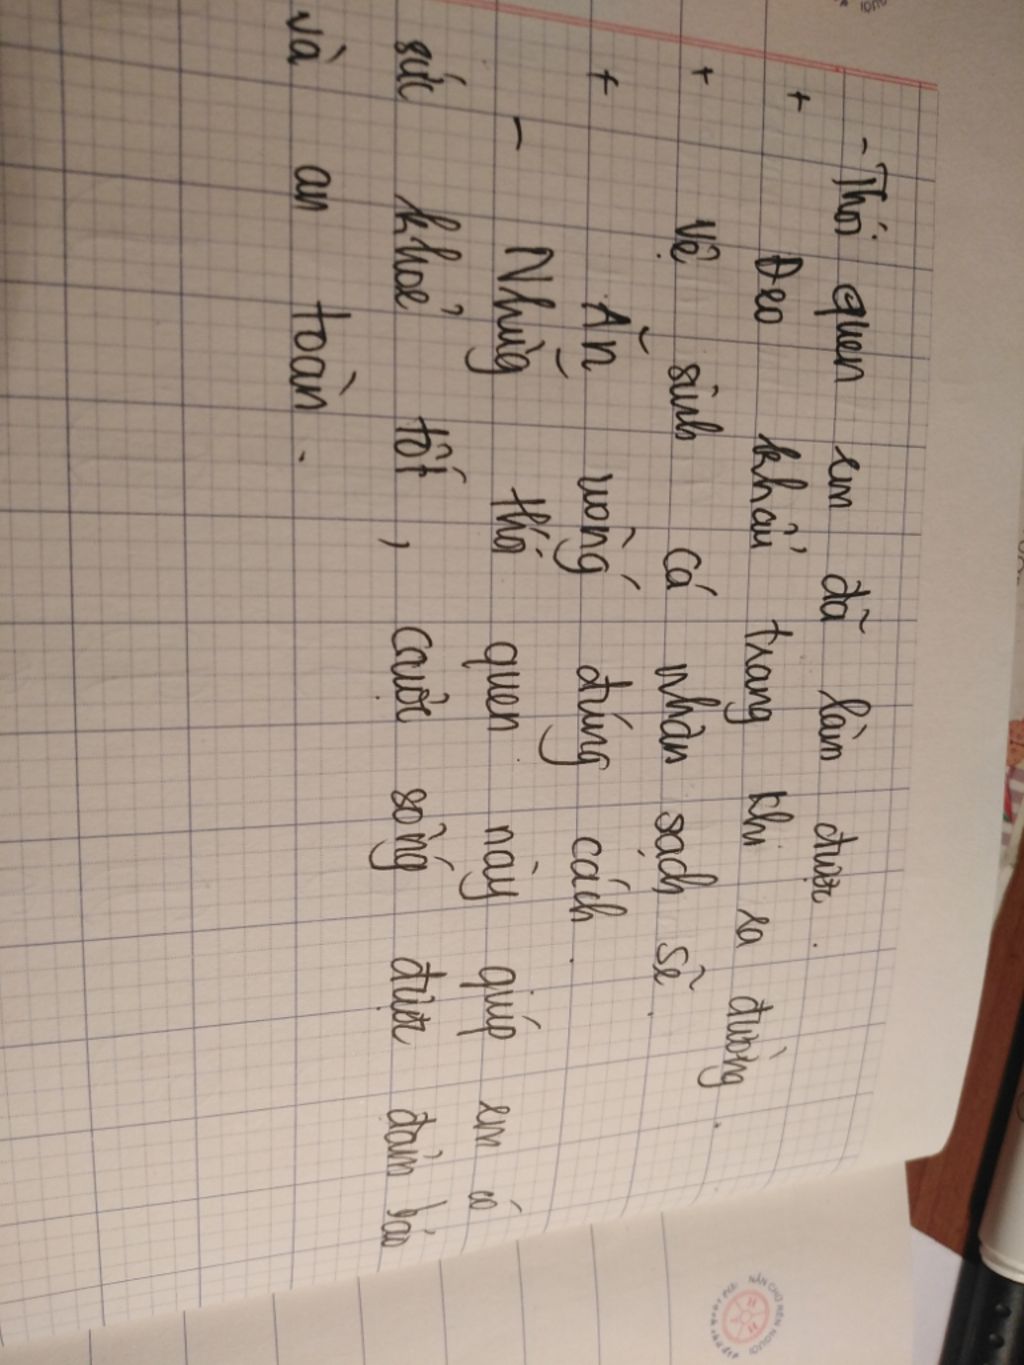 - Thói quen em đã làm được.
+ Đeo khẩu trang khi ra đường.
+ Vệ sinh cá nhân sạch sẽ.
+ Ăn uống đúng cách.
- Những thói quen này giúp em có
sức khoẻ tốt, cuộc sống được đảm bảo
và an toàn.